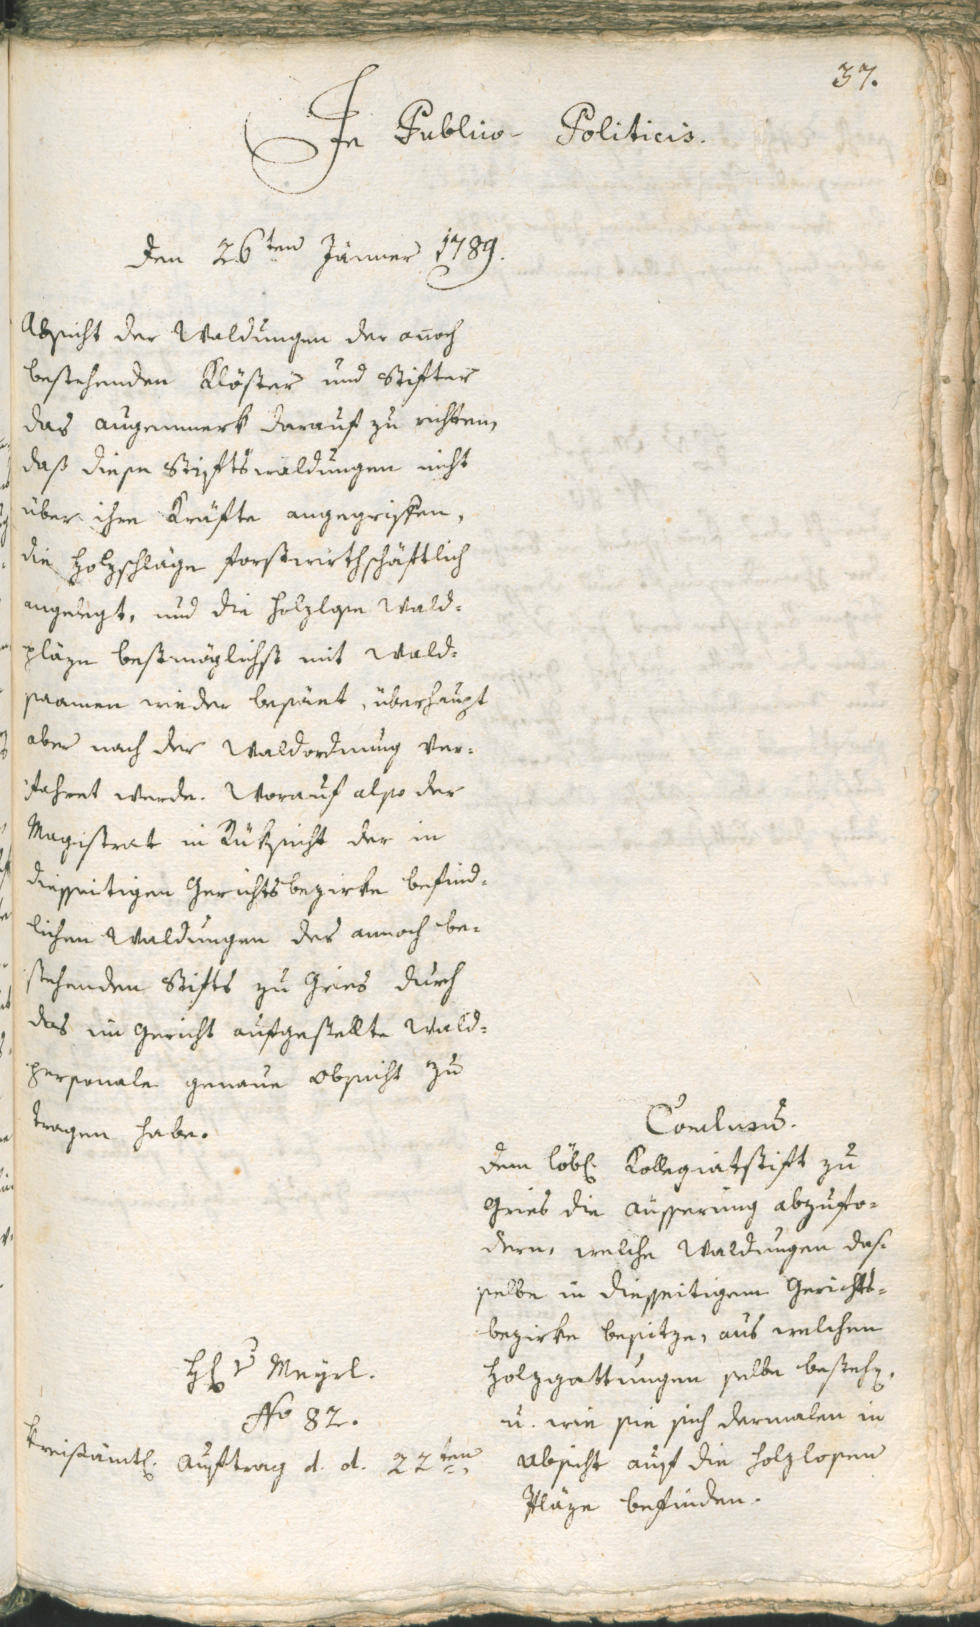 37.
In Publico- Politicis.
den 26ten Jänner 1789.
Absicht der Waldungen der annoch
bestehenden Klöster und Stifter
das augenmerk darauf zu richten,
daß diese Stiftswaldungen nicht
über ihre Kräfte angegriffen,
die Holzschläge forstwirthschäftlich
angelegt, und die holzlose Wald-
pläze bestmöglichst mit Wald-
saamen wieder besäet, überhaupt
aber nach der Waldordnung ver-
fahret werde. Worauf also der
Magistrat in Rüksicht der in
diesseitigen Gerichtsbezirke befind-
lichen Waldungen des annoch be-
stehenden Stifts zu Gries durch
das im Gericht aufgestellte Wald-
personale genaue obsicht zu
tragen habe.
Conclusum.
dem löbl. Kollegiatstift zu
Gries die äusserung abzufo-
dern, welche Waldungen das-
selbe in diesseitigem Gerichts-
bezirke besitze, aus welchen
Holzgattungen selbe bestehen,
u. wie sie sich dermalen in
absicht auf die holzlosen
Pläze befinden.
H v Mayrl.
No 82.
Kreisämtl. Auftrag d. d. 22ten